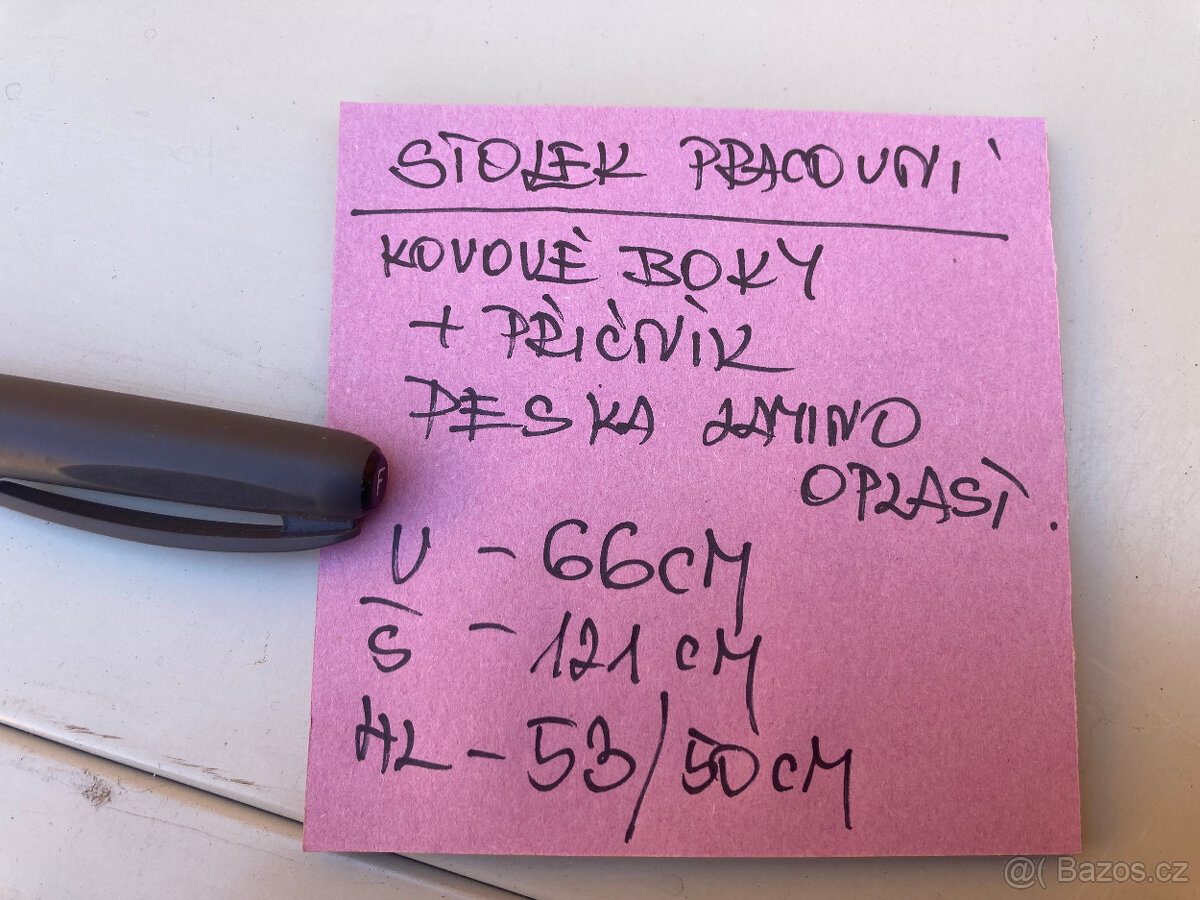 STOLEK PRACOVNÍ
KOVOVÉ BOKY
+ PŘÍČNÍK
DESKA LAMINO
OPLAST.
V - 66CM
Š - 121 CM
HL - 53/50CM
F
@( Bazos.cz